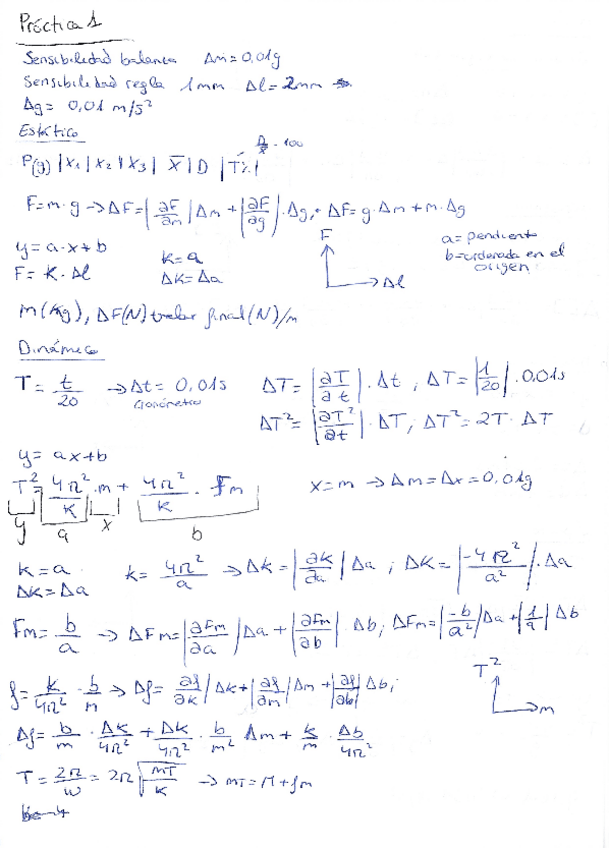 Práctica 1
Sensibilidad balanza Δm = 0,01g
Sensibilidad regla 1mm Δl = 2mm
Δg = 0,01 m/s²
Estático
D/x̄ · 100
P(g) | x₁ | x₂ | x₃ | X̄ | D | T% |
F = m·g → ΔF = |∂F/∂m| Δm + |∂F/∂g| · Δg, ΔF = g·Δm + m·Δg
y = a·x + b K = a F a = pendiente
F = K · Δl ΔK = Δa Δl b = ordenada en el origen
m (Kg), ΔF (N) valor final (N)/m
Dinámico
T = t/20 → Δt = 0,01s ΔT = |∂T/∂t| · Δt, ΔT = |1/20| · 0,01s
Cronómetro ΔT² = |∂T²/∂t| · ΔT, ΔT² = 2T · ΔT
y = ax + b
T² = 4π²/K · m + 4π²/K · fm x = m → Δm = Δx = 0,01g
y a x b
K = a k = 4π²/a → Δk = |∂k/∂a| Δa; ΔK = |-4π²/a²| · Δa
ΔK = Δa
Fm = b/a → ΔFm = |∂Fm/∂a| Δa + |∂Fm/∂b| Δb; ΔFm = |-b/a²| Δa + |1/a| Δb
f = k/4π² · b/m → Δf = ∂f/∂k | Δk + |∂f/∂m| Δm + |∂f/∂b| Δb; T² m
Δf = b/m · Δk/4π² + Δk/4π² · b/m² Δm + k/m · Δb/4π²
T = 2π/ω = 2π √(mT/K) → mT = M + fm